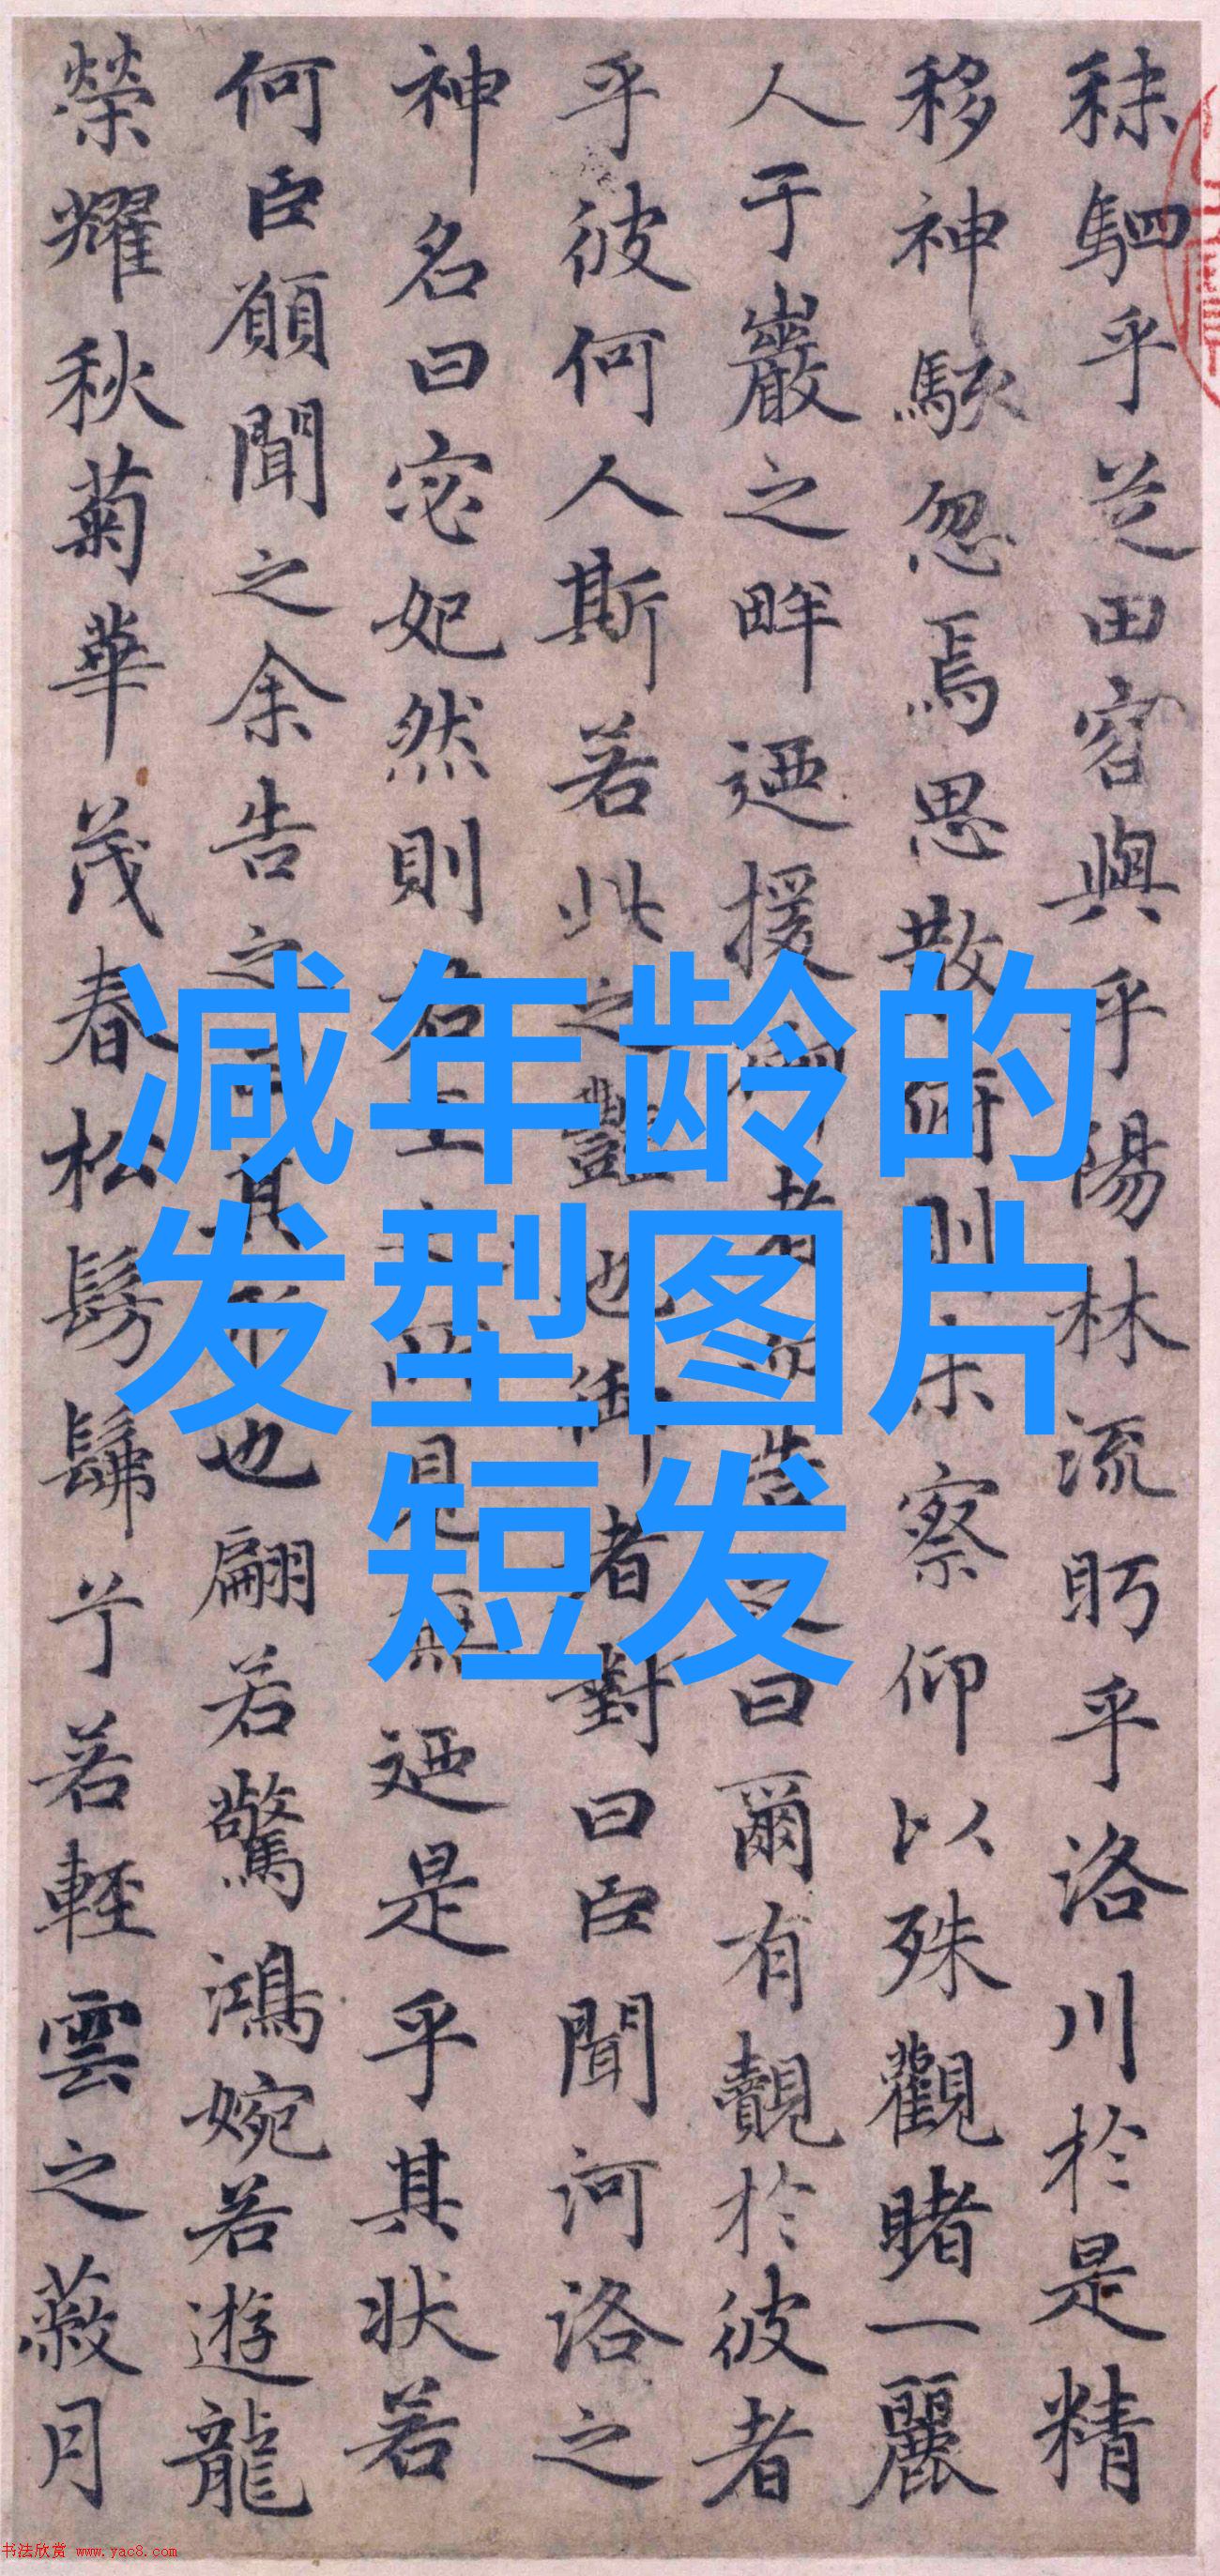 秣駟乎芝田容與乎陽林流眄乎洛川於是精
移神駭忽焉思散俯則未察仰以殊觀睹一麗
人于巖之畔迺援御者而告之曰爾有覿於彼者
乎彼何人斯若此之豔也御者對曰臣聞河洛之
神名曰宓妃然則君王之所見無迺是乎其狀若
何臣願聞之余告之曰其形也翩若驚鴻婉若遊龍
榮耀秋菊華茂春松髣髴兮若輕雲之蔽月
减年龄的
发型图片
短发
书法欣赏 www.yac8.com